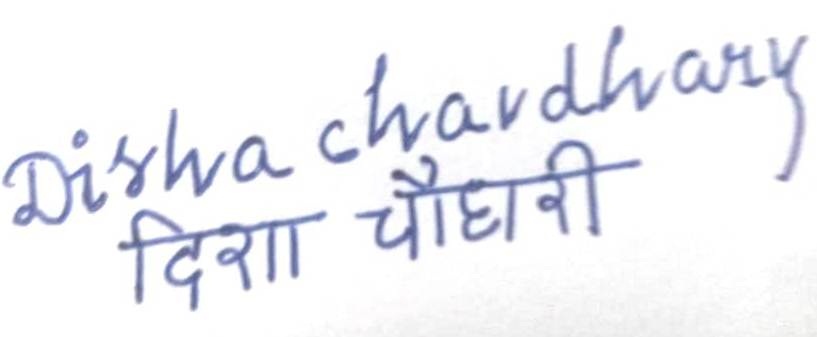 Disha chaudhary
दिशा चौधरी